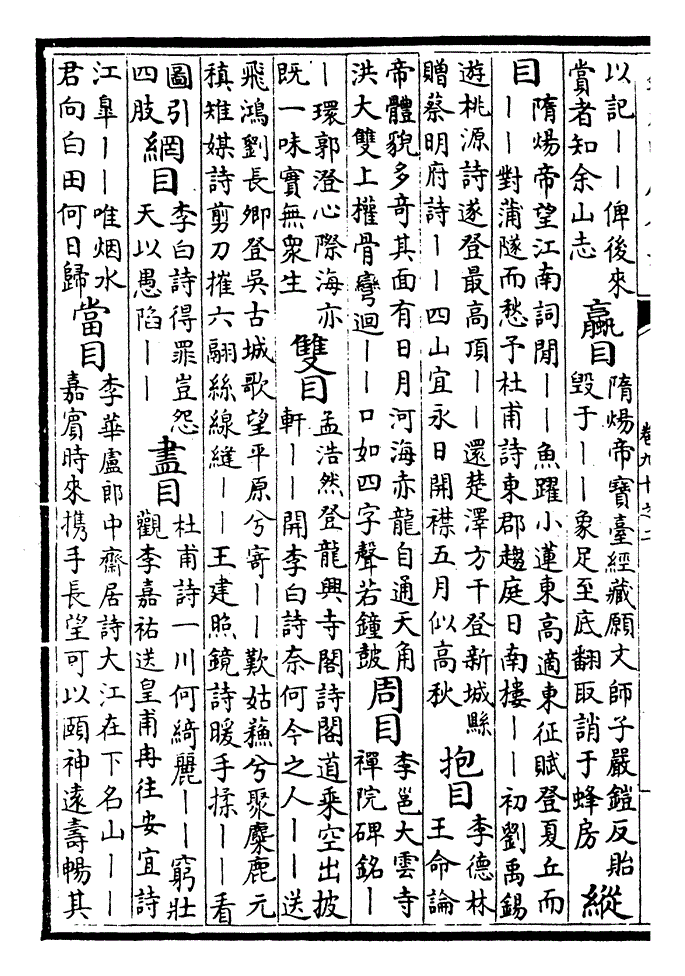 以記丨丨俾後來
賞者知余山志
嬴目
隋煬帝寶臺經藏願文師子嚴鎧反貽
毀于丨丨象足至底翻取誚于蜂房
縱
目
隋煬帝望江南詞閒丨丨魚躍小蓮東高適東征賦登夏丘而
丨丨對蒲隧而愁予杜甫詩東郡趨庭日南樓丨丨初劉禹錫
遊桃源詩遂登最高頂丨丨還楚澤方干登新城縣
贈蔡明府詩丨丨四山宜永日開襟五月似高秋
抱目
李德林
王命論
帝體貌多奇其面有日月河海赤龍自通天角
洪大雙上權骨彎迴丨丨口如四字聲若鐘皷
周目
李邕大雲寺
禪院碑銘丨
丨環郭澄心際海亦
既一味實無衆生
雙目
孟浩然登龍興寺閣詩閣道乘空出披
軒丨丨開李白詩奈何今之人丨丨送
飛鴻劉長卿登吳古城歌望平原兮寄丨丨歎姑蘓兮聚麋鹿元
稹雉媒詩剪刀摧六翮絲線縫丨丨王建照鏡詩暖手揉丨丨看
圖引
四肢
網目
李白詩得罪豈怨
天以愚陷丨丨
盡目
杜甫詩一川何綺麗丨丨窮壯
觀李嘉祐送皇甫冉往安宜詩
江皐丨丨唯烟水
君向白田何日歸
當目
李華盧郎中齋居詩大江在下名山丨丨
嘉賓時來携手長望可以頤神遠壽暢其